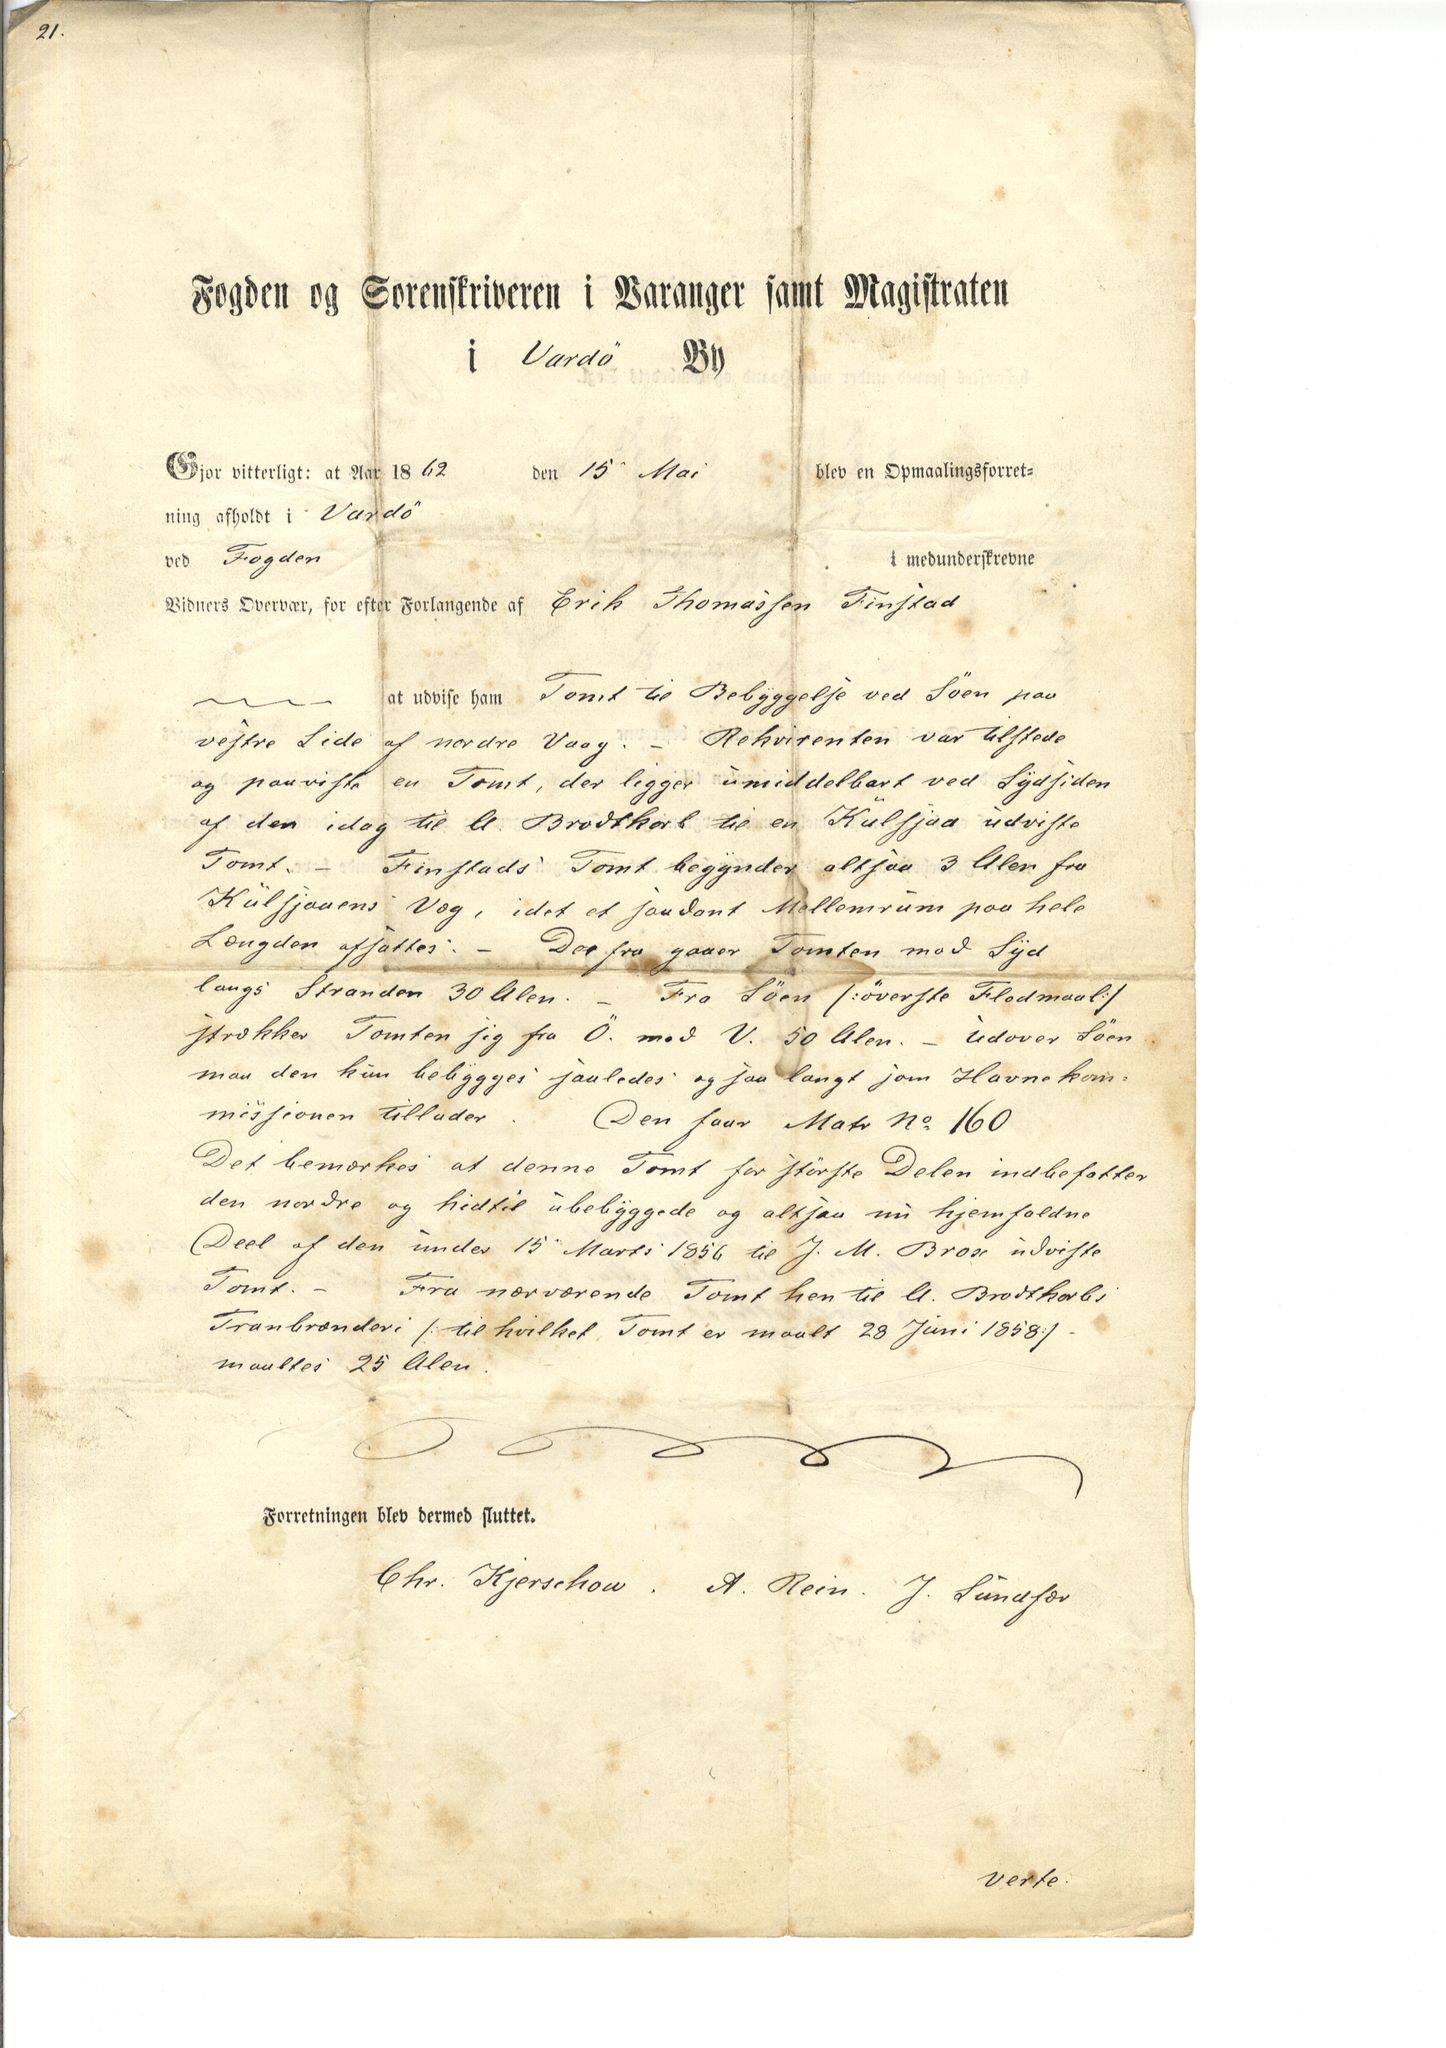 21.
Fogden og Sorenskriveren i Varanger samt Magistraten
i Vardö By
Gjor vitterligt: at Aar 1862 den 15 Mai blev en Opmaalingsforret-
ning afholdt i Vardö
ved Fogden i medunderskrevne
Vidners Overvær, for efter Forlangende af Erik Thomassen Finstad
at udvise ham Tomt til Bebyggelse ved Söen paa
vestre Side af nordre Vaag. – Rekvirenten var tilstede
og paaviste en Tomt, der ligger umiddelbart ved Sydsiden
af den idag til A. Brodtkorb til en Kulsjaa udviste
Tomt. – Finstads Tomt begynder altsaa 3 Alen fra
Kulsjaaens Væg, idet et saadant Mellemrum paa hele
Længden afsattes. – Der fra gaaer Tomten mod Syd
langs Stranden 30 Alen. – Fra Söen /:överste Flodmaal:/
strækker Tomten sig fra Ö. mod V. 50 Alen. – Udover Söen
maa den kun bebygges saaledes og saa langt som Havnekom-
missionen tillader. Den faar Matr No 160
Det bemærkes at denne Tomt for störste Delen indbefatter
den nordre og hidtil ubebyggede og altsaa nu hjemfaldne
Deel af den under 15 Marts 1856 til J. M. Brox udviste
Tomt. – Fra nærværende Tomt hen til A. Brodtkorbs
Tranbrænderi /: til hvilket Tomt er maalt 28 Juni 1858:/ -
maaltes 25 Alen.
Forretningen blev dermed sluttet.
Chr. Kjerschow. A. Rein. J. Sundfær
verte.